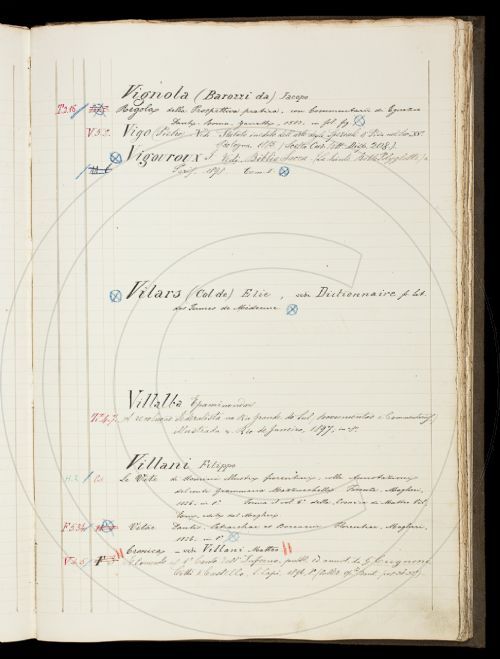 Vignola (Barozzi da) Jacopo
Regola della Prospettiva pratica, con Commentario di Egnazio
Danti. Roma, 1583. in fol. fig.
V.5.2. Vigo (Pietro) Vedi Statuto inedito dell'arte degli Speziali di Pisa nel Sec. XV.
Bologna, 1885 (Scelta Cur. Lett. Disp. 208.)
Vigouroux F. Vedi Biblia Sacra (La Sainte Bible Polyglotte)
Paris, 189 Tom. 1.
Vilars (Col. de) Elie, vide Dictionnaire fr. lat.
des Termes de Médecine
Villalba Epaminondas
A revoluçao federalista no Rio grande do Sul, documentos e Commentarios
illustrada. Rio de Janeiro, 1897, in 8°.
Villani Filippo
Le Vite di Uomini illustri fiorentini, colle Annotazioni
del conte Giammaria Mazzucchelli. Firenze, Magheri,
1826. in 8° Forma il vol. 6° della Cronica di Matteo Vil-
lani, ediz. del Magheri.
Vitae Dantis, Petrarchae et Boccaccii. Florentiae, Magheri,
1826. in 8°
Cronica - vide Villani Matteo
Il Comento al 1° Canto dell'Inferno, pubb. ed annot. da G. Cugnoni
Città di Castello, S. Lapi, 1896, 8°